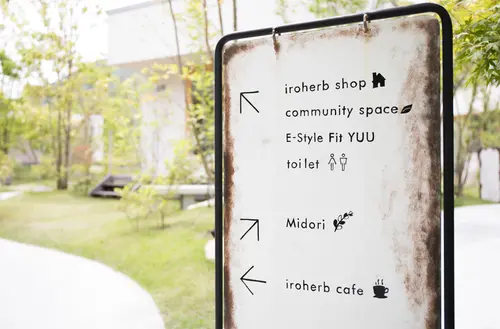 iroherb shop
community space
E-Style Fit YUU
toilet
Midori
iroherb cafe